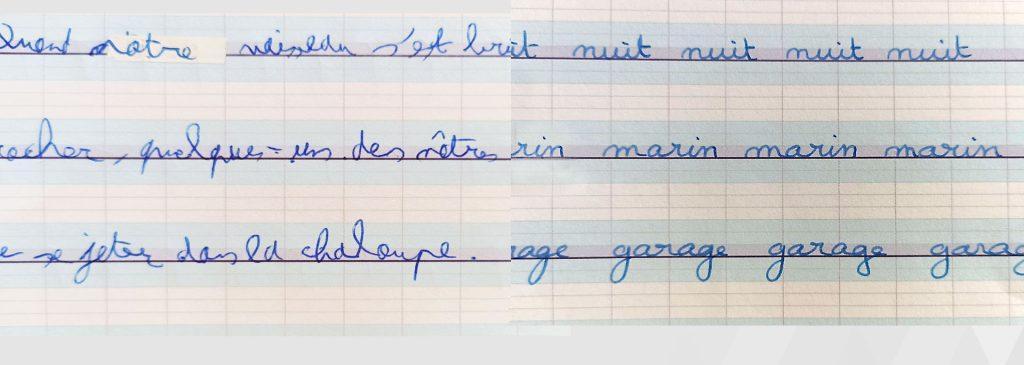 Quand notre vaisseau s'est bruit nuit nuit nuit nuit
rocher, quelques-uns des nôtres rin marin marin marin
se jeter dans la chaloupe. rage garage garage garag